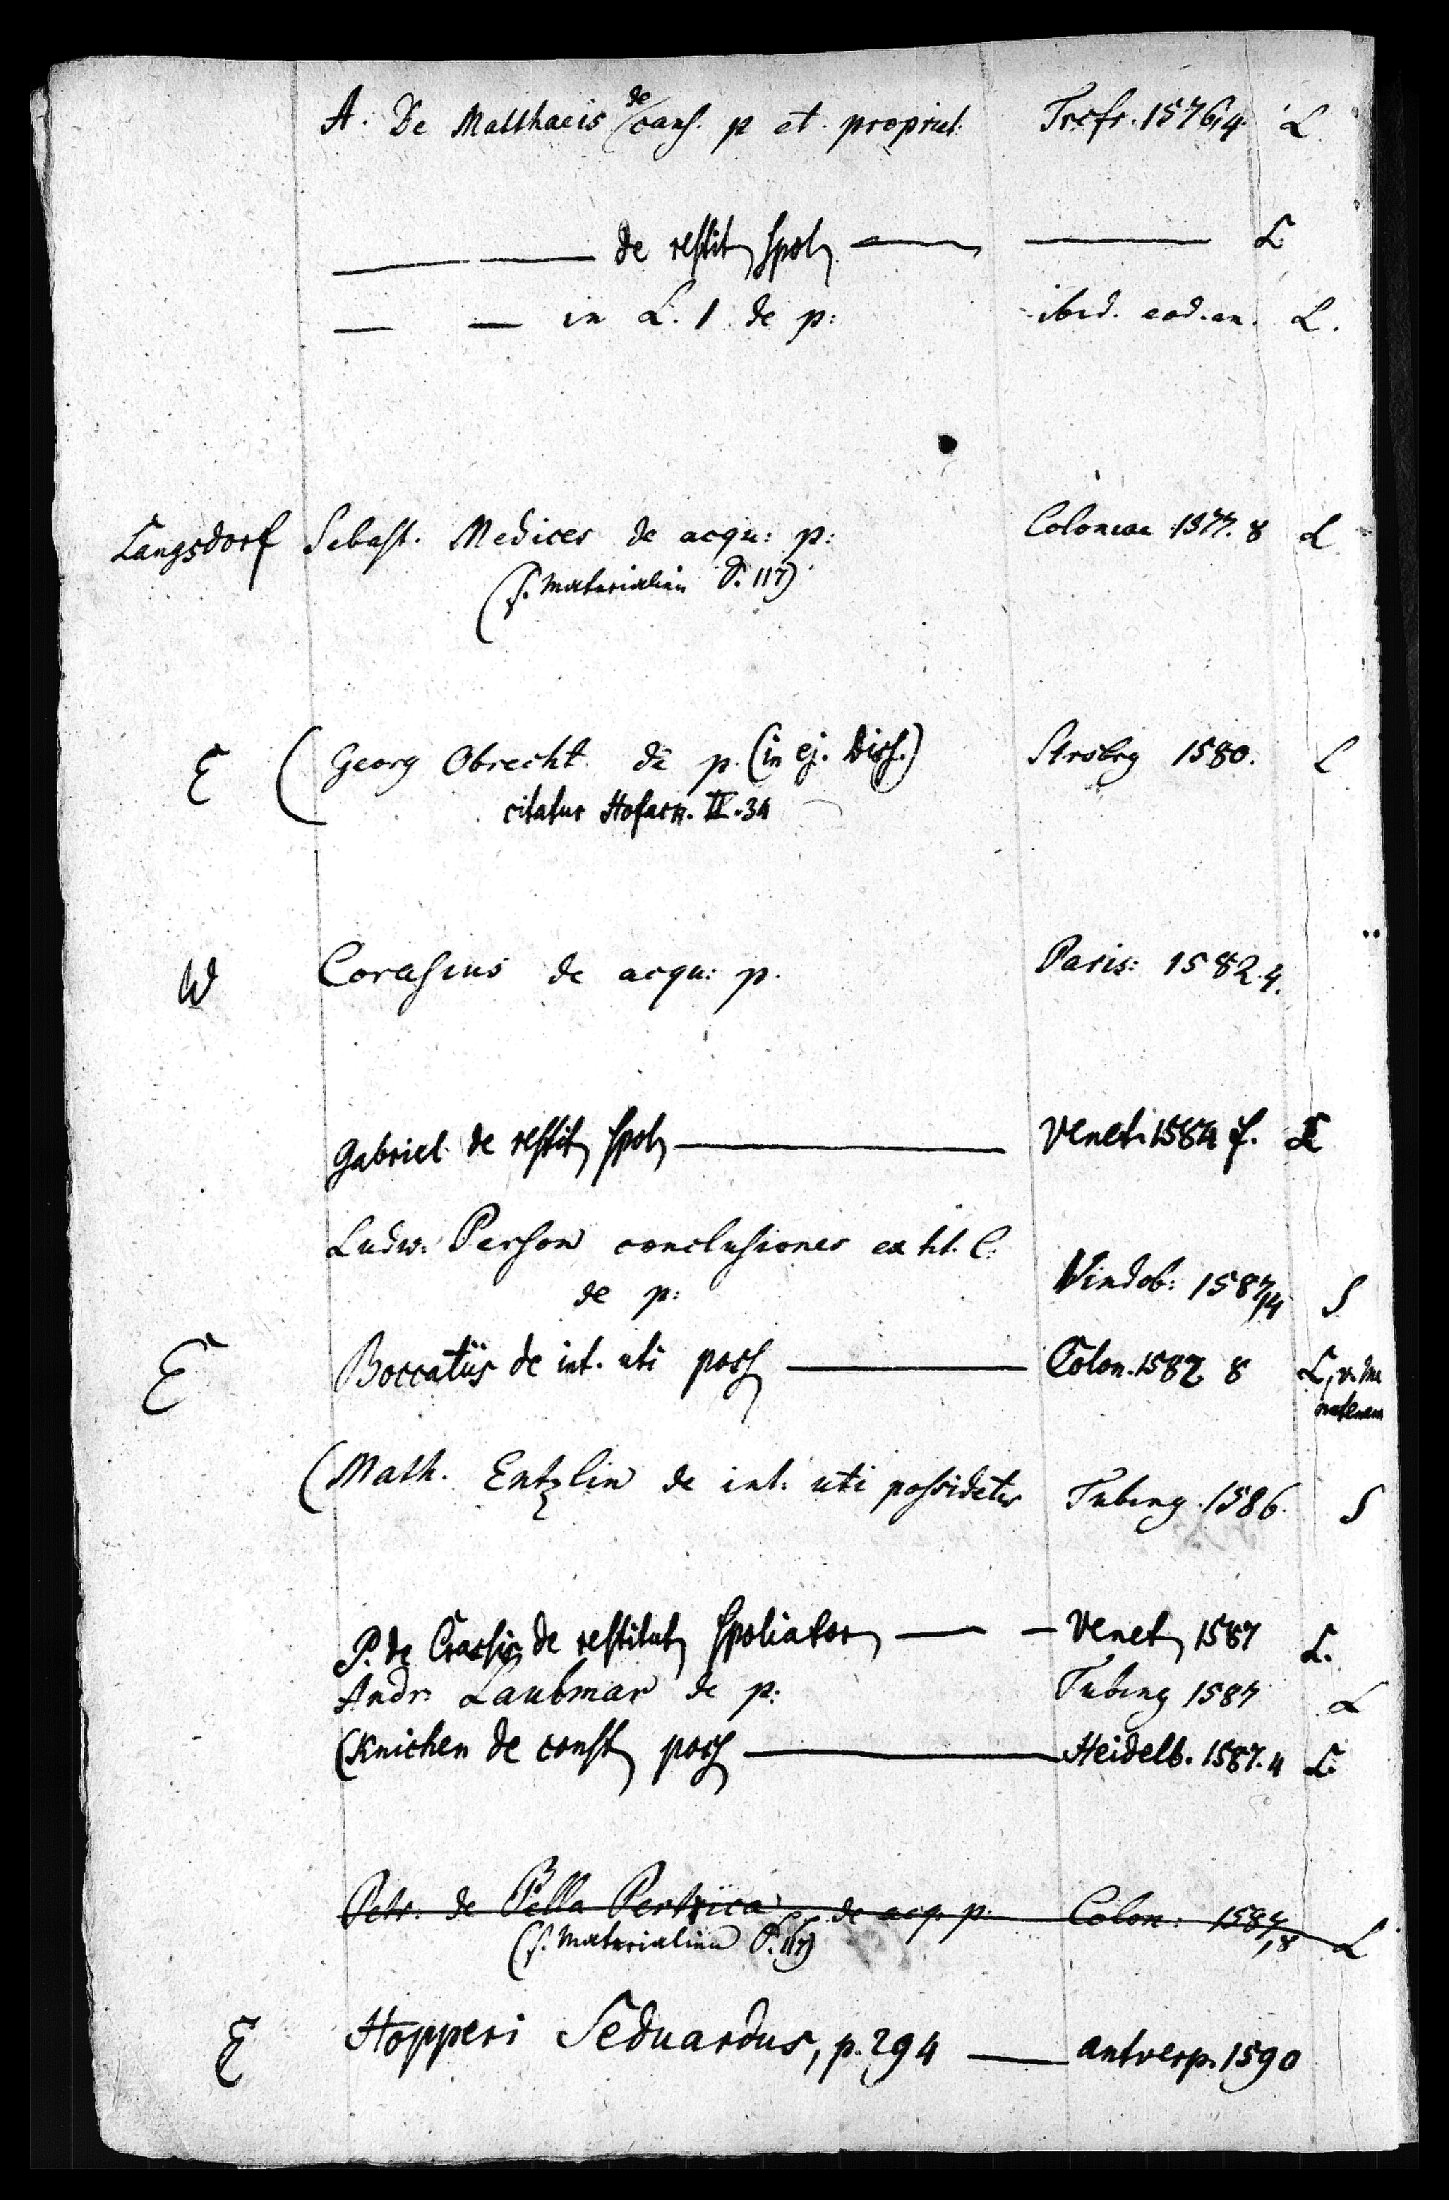 A. De Matthaeis de caus. p et propriet. Frcfr. 1576,4 L
de restit spol L
in L. 1 de p: ibid. eod. an. L.
Langsdorf Sebast. Medices de acqu: p: Coloniae 1577. 8 L
(s. Materialien S. 117)
E (Georg Obrecht de p. (in ej. Diss.) Strsbrg 1580. L
citatus Hofack. II. 34
W Corasius de acqu: p. Paris: 1582.4.
Gabriel de restit spol Venet. 1584 f. L
Ludw. Person conclusiones ex tit. C.
de p: Vindob: 1587,4 S
E Boccatiis de int. uti poss Colon. 1582 8 L,
(Math. Entzlin de int. uti possidetis Tubing. 1586. S
P. de Crassis de restitut spoliator Venet 1587 L.
Andr. Laubmar de p: Tubing 1587 L
(Knichen de const poss Heidelb. 1587. 4 L.
Petr. de Bella Pertica de acq. p: Colon: 1587,8 L
(s. Materialien S. 117)
E Hopperi Seduardus, p. 294 antverp. 1590